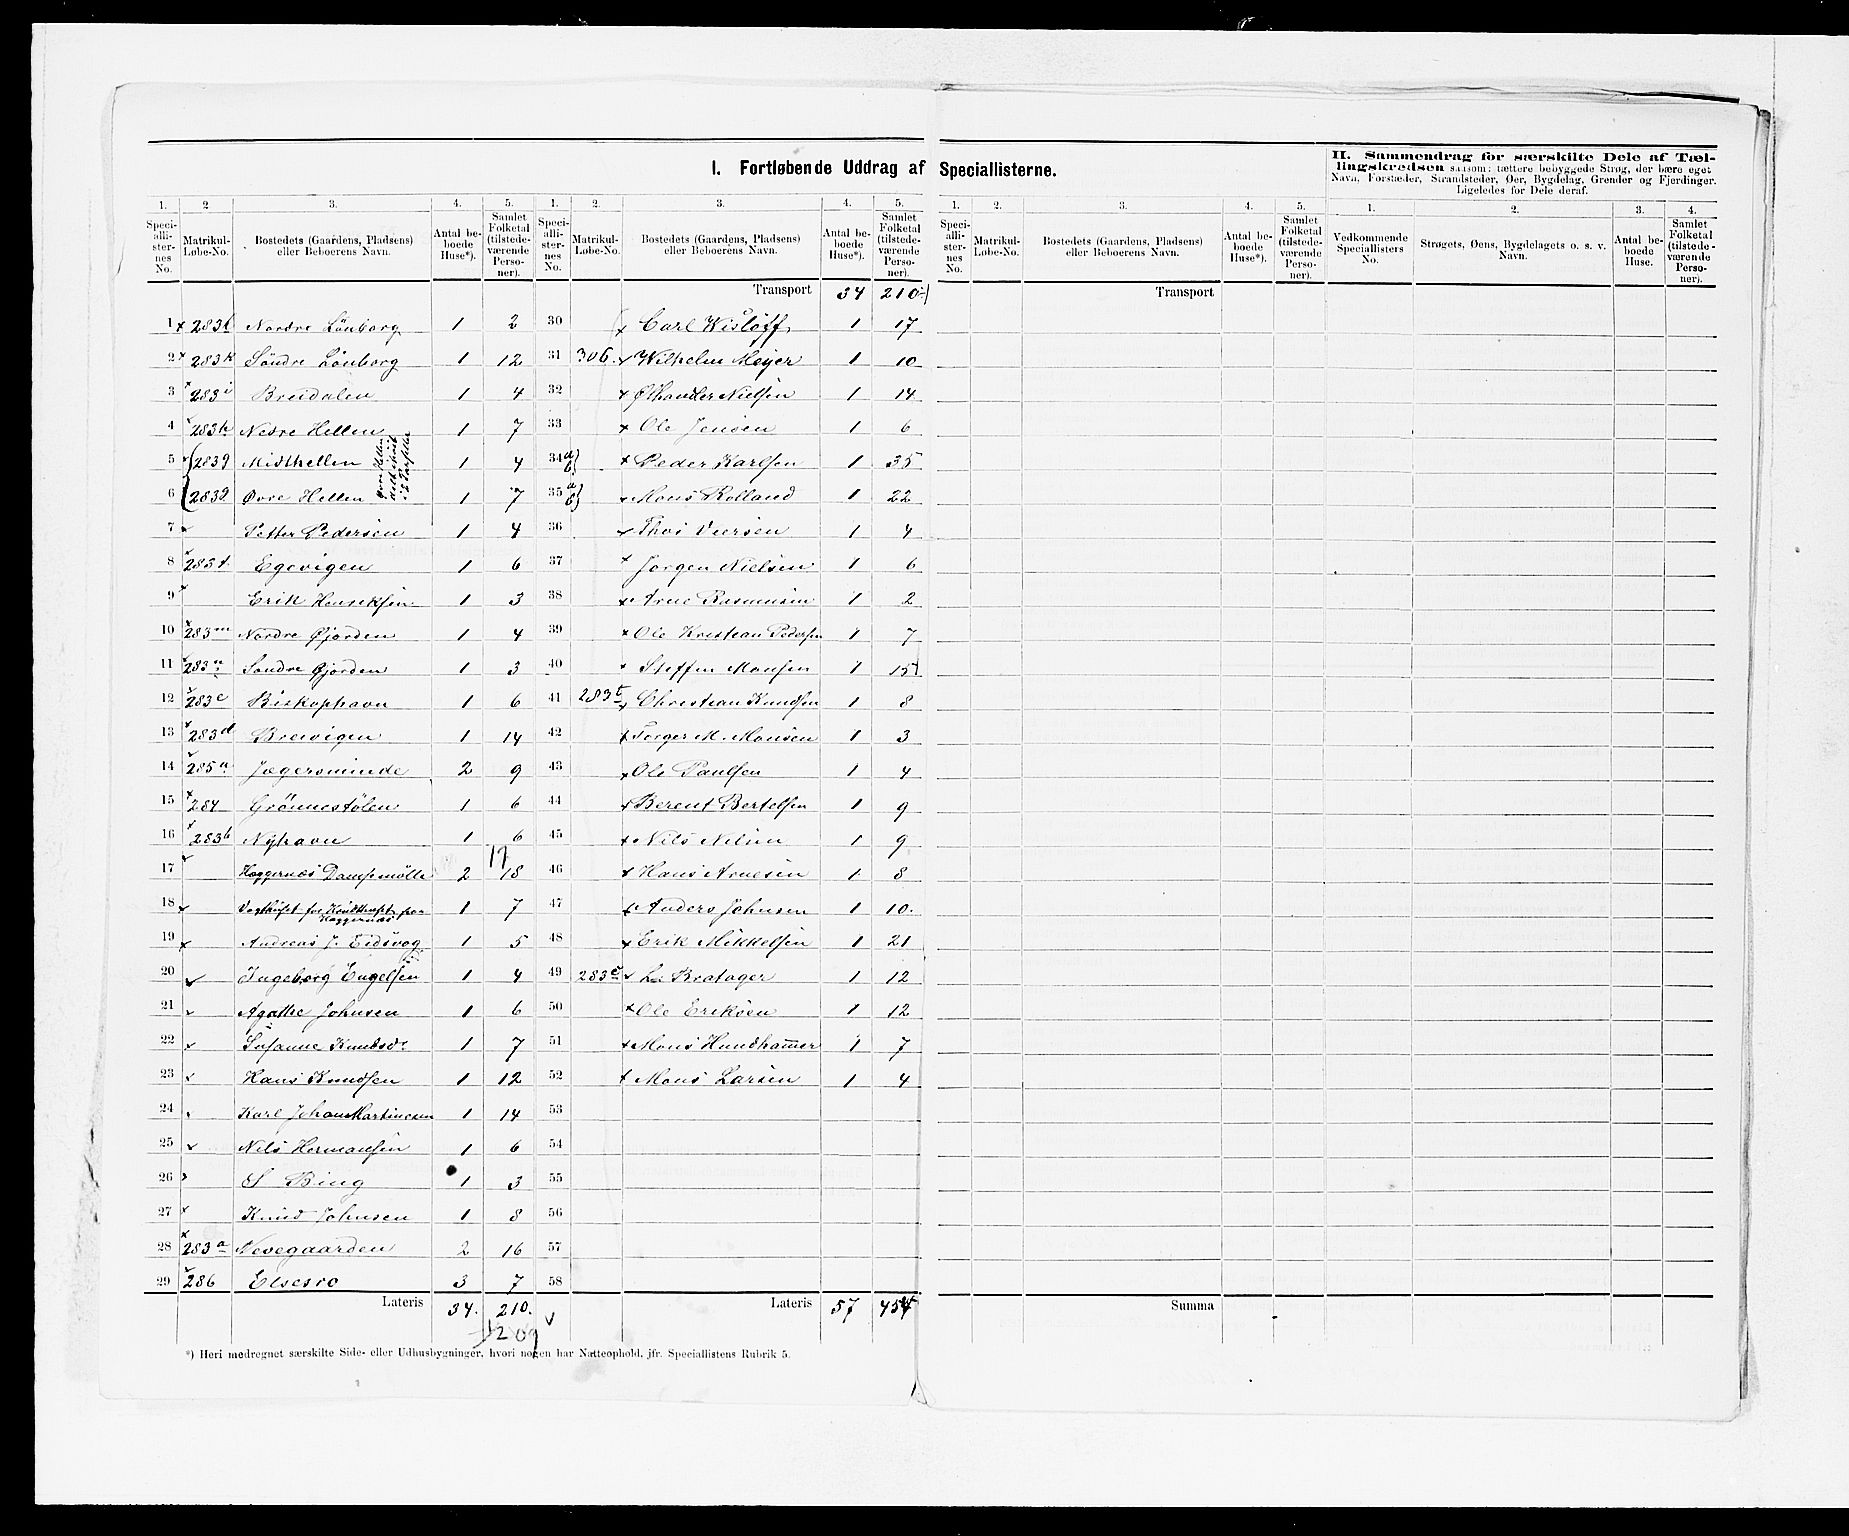 I. Fortløbende Uddrag af Speciallisterne.
II. Sammendrag for særskilte Dele af Tæl-
lingskredsen saasom: tættere bebyggede Strøg, der bære eget
Navn, Forstæder, Strandsteder, Øer, Bygdelag, Grender og Fjerdinger.
Ligeledes for Dele deraf.
1. 2. 3. 4. 5. 1. 2. 3. 4. 5.
Speci-alli-ster-nes No. Matrikul-Løbe-No. Bostedets (Gaardens, Pladsens) eller Beboerens Navn. Antal be-boede Huse*). Samlet Folketal (tilstede-værende Perso-ner). Speci-alli-ster-nes No. Matrikul-Løbe-No. Bostedets (Gaardens, Pladsens) eller Beboerens Navn. Antal be-boede Huse*). Samlet Folketal (tilstede-værende Perso-ner).
Transport 34 210
1 283l Nordre Lönborg 1 2
2 283k Söndre Lönborg 1 12
3 283i Breidalen 1 4
4 283h Nedre Hellen 1 7
5 283g Midthellen 1 4
6 2832 Øvre Hellen 1 7
7 Petter Pedersen 1 4
8 283f Egevigen 1 6
9 Erik Henriksen 1 3
10 283m Nordre Gjorden 1 4
11 283n Sondre Gjorden 1 3
12 283c Biskophavn 1 6
13 283d Breivigen 1 14
14 285a Jægersminde 2 9
15 284 Grönnestölen 1 6
16 283b Nyhavn 1 6
17 Heggernæs Dampmölle 2 18
17
18 Vagthuset for Krudthuset paa Heggernæs 1 7
19 Andreas J. Eidsvog 1 5
20 Ingeborg Engelsen 1 4
21 Agathe Johnsen 1 6
22 Susanne Knudsdr 1 7
23 Hans Knudsen 1 12
24 Karl Johan Martinesen 1 14
25 Nils Hermansen 1 6
26 S Bing 1 3
27 Knud Johnsen 1 8
28 283a Nevegaarden 2 16
29 286 Elsesro 3 7
Lateris 34. 210.
209
30 Carl Wisløff 1 17
31 306. Wilhelm Meyer 1 10
32 Nielsen 1 14
33 Ole Jensen 1 6
34 a b Peder Karlsen 1 35
35 a b Mons Rolland 1 22
36 Thos Iversen 1 4
37 Jørgen Nielsen 1 6
38 Arne Rasmussen 1 2
39 Ole Kristian Pedersen 1 7
40 Steffen Monsen 1 15
41 283t Christian Knudsen 1 8
42 Torger M. Monsen 1 3
43 Ole Paulsen 1 4
44 Berent Bertelsen 1 9
45 Nils Nilsen 1 9
46 Hans Arnesen 1 8
47 Anders Johnsen 1 10.
48 Erik Mikkelsen 1 21
49 283e L. Bratager 1 12
50 Ole Eriksen 1 12
51 Mons Hundhammer 1 7
52 Mons Larsen 1 4
53
54
55
56
57
58
Lateris 57 454
*) Heri medregnet særskilte Side- eller Udhusbygninger, hvori nogen har Natteophold, jfr. Speciallistens Rubrik 5.
1. 2. 3. 4. 5. 1. 2. 3. 4.
Speci-alli-ster-nes No. Matrikul-Løbe-No. Bostedets (Gaardens, Pladsens) eller Beboerens Navn. Antal be-boede Huse*). Samlet Folketal (tilstede-værende Perso-ner). Vedkommende Speciallisters No. Strøgets, Øens, Bygdelagets o. s. v. Navn. Antal be-boede Huse. Samlet Folketal (tilstede-værende Perso-ner).
Transport
Summa